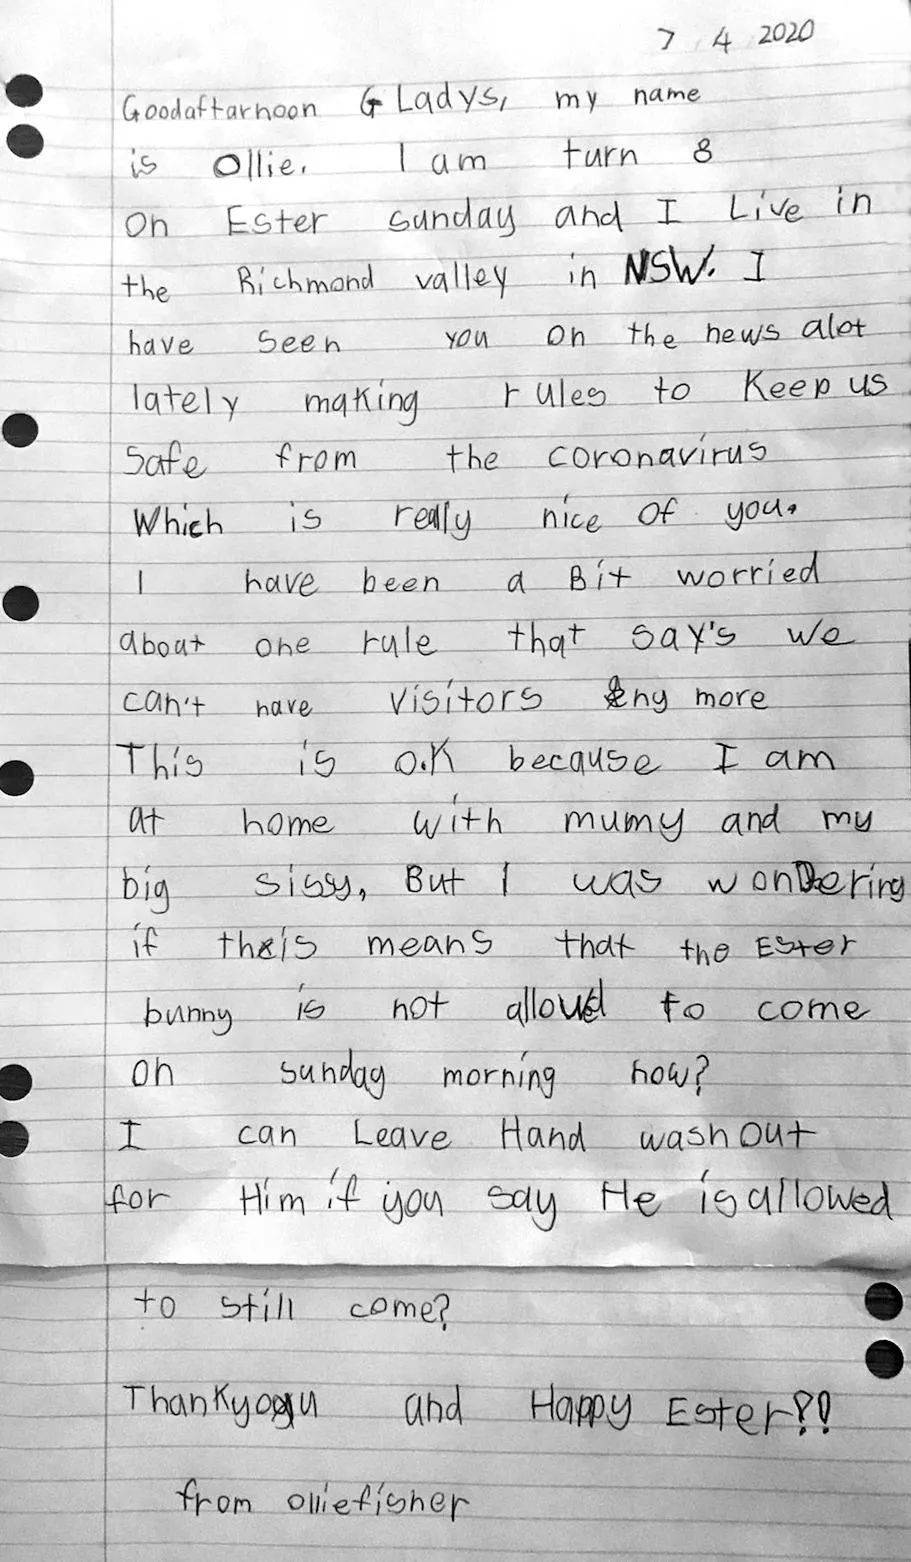 7 4 2020
Goodaftarnoon GLadys, my name
is Ollie. I am turn 8
on Ester sunday and I Live in
the Richmond valley in NSW. I
have seen you on the news alot
lately making rules to keep us
safe from the coronavirus
Which is really nice of you.
I have been a Bit worried
about one rule that say's we
can't have visitors eny more
This is O.K because I am
at home with mumy and my
big sissy, But I was wonDering
if theis means that the Ester
bunny is not alloued to come
on sunday morning now?
I can Leave Hand wash out
for Him if you say He is allowed
to still come?
Thankyou and Happy Ester?!
from olliefisher